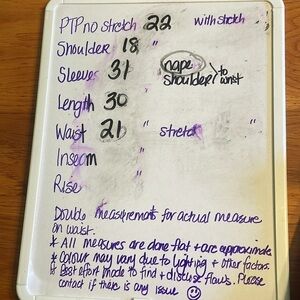 PTP no stretch 22 with stretch
Shoulder 18 "
Sleeves 31 nape shoulder } to wrist
Length 30
Waist 21 " stretch "
Inseam "
Rise "
Double measurements for actual measure
on waist.
* All measures are done flat + are approximate
* Colour may vary due to lighting + other factors.
* Best effort made to find + discuss flaws. Please
contact if there is any issue ☺